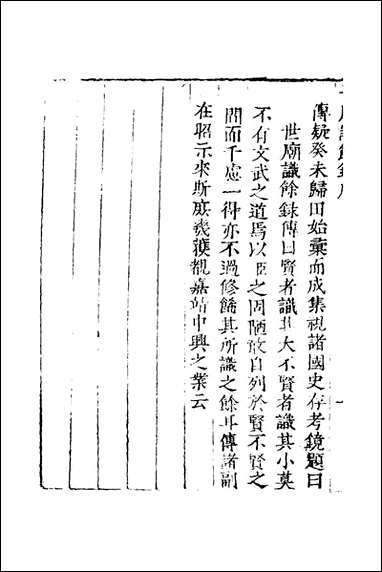 傳疑癸未歸田始彙而成集視諸國史存考鏡題曰
世廟識餘錄傳曰賢者識其大不賢者識其小莫
不有文武之道焉以臣之固陋敢自列於賢不賢之
間而千慮一得亦不過修飾其所識之餘耳傳諸副
在昭示來斯庶幾獲觀嘉靖中興之業云